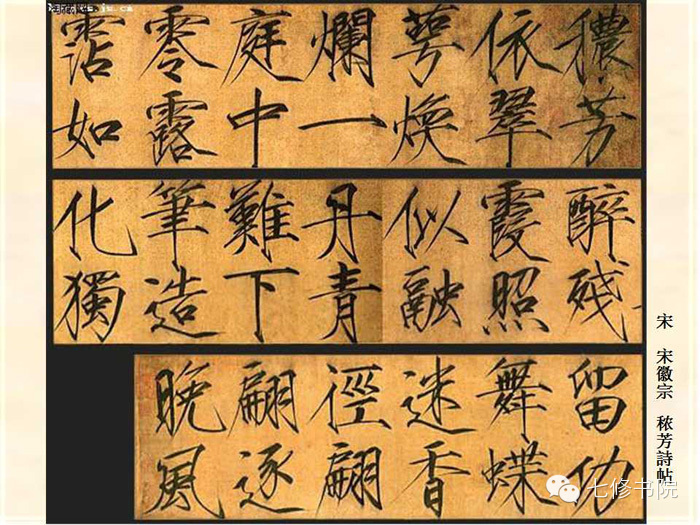 穠芳
依翠
萼煥
爛一
庭中
零露
霑如
醉殘
霞照
似融
丹青
難下
筆造
化獨
留功
舞蝶
迷香
徑翩
翩逐
晚風
宋 宋徽宗 秾芳詩帖
七修书院